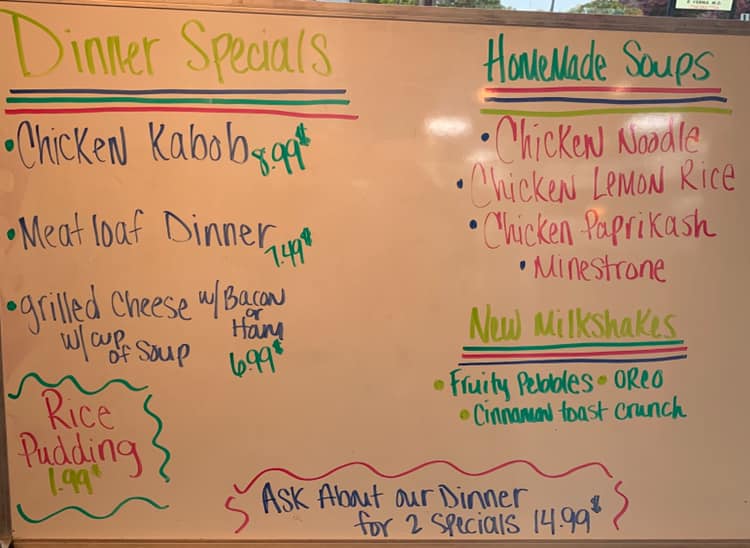 Dinner Specials
• Chicken Kabob 8.99$
• Meat loaf Dinner 7.49$
• grilled Cheese w/ Bacon
or
Ham
w/ cup
of Soup
6.99$
Rice
Pudding
1.99$
HomeMade Soups
• Chicken Noodle
• Chicken Lemon Rice
• Chicken Paprikash
• Minestrone
New Milkshakes
• Fruity Pebbles • OREO
• Cinnamon toast crunch
ASK About our Dinner
for 2 Specials 14.99$